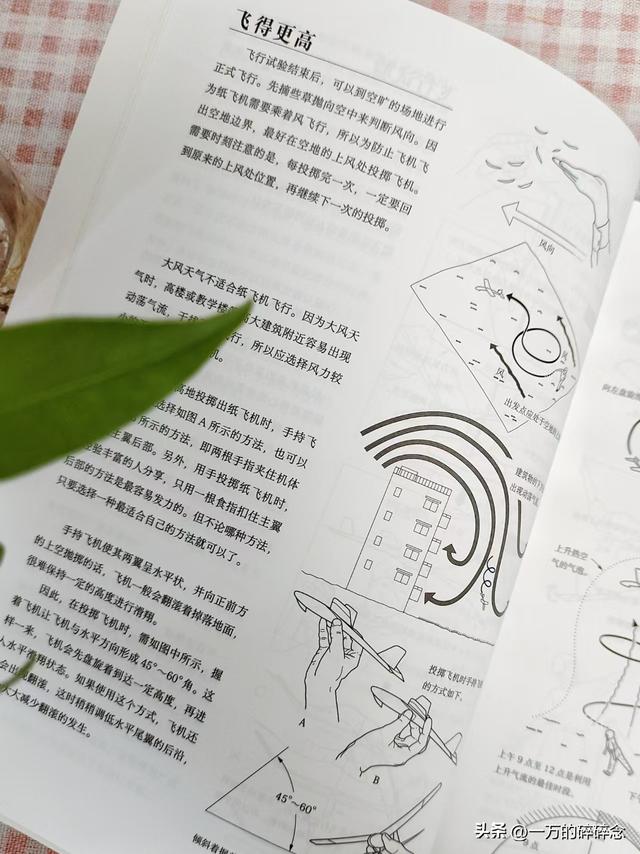 飞得更高
飞行试验结束后，可以到空旷的场地进行
正式飞行。先摘些草抛向空中来判断风向。因
为纸飞机需要乘着风飞行，所以为防止飞机飞
出空地边界，最好在空地的上风处投掷飞机。
需要时刻注意的是，每投掷完一次，一定要回
到原来的上风处位置，再继续下一次的投掷。
大风天气不适合纸飞机飞行。因为大风天
气时，高楼或教学楼
大建筑附近容易出现
动荡气流，干扰
行，所以应选择风力较
机。
高地投掷出纸飞机时，手持飞
选择如图A所示的方法，也可以
所示的方法，即两根手指夹住机体
主翼后部。另外，用手投掷纸飞机时，
验丰富的人分享，只用一根食指扣住主翼
后部的方法是最容易发力的。但不论哪种方法，
只要选择一种最适合自己的方法就可以了。
手持飞机使其两翼呈水平状，并向正前方
的上空抛掷的话，飞机一般会翻滚着掉落地面，
很难保持一定的高度进行滑翔。
因此，在投掷飞机时，需如图中所示，握
着飞机让飞机与水平方向形成45°~60°角。这
样一来，飞机会先盘旋着到达一定高度，再进
入水平滑翔状态。如果使用这个方式，飞机还
会出现翻滚，这时稍稍调低水平尾翼的后沿，
大大减少翻滚的发生。
风向
风
出发点应处于空地的上
建筑物的下
出现动荡气流
投掷飞机时手持
的方式如下。
A
B
45°~60°
倾斜着握
向左盘旋
上升热空
气的气泡。
上午9点至12点是利用
上升气流的最佳时段。
下午
点
头条 @一万的碎碎念